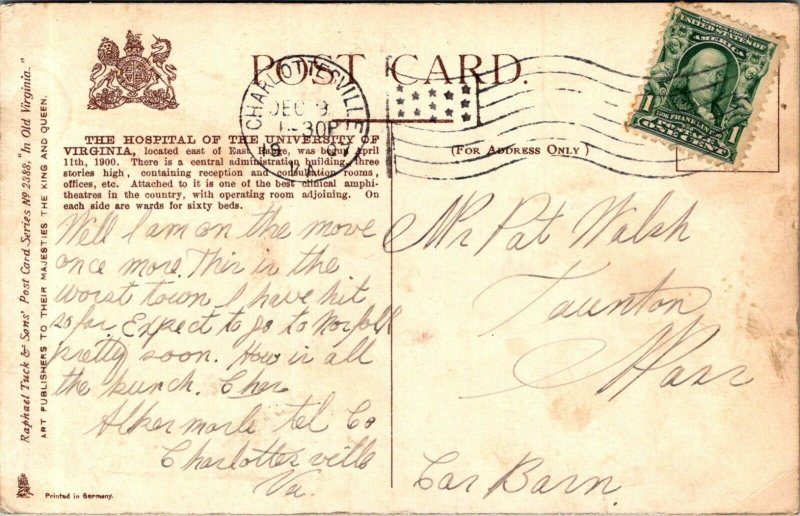 POST CARD.
CHARLOTTESVILLE
DEC 9
1-30P
VA
UNITED STATES OF AMERICA
FRANKLIN
1 ONE CENT 1
THE HOSPITAL OF THE UNIVERSITY OF
VIRGINIA, located east of East Range, was begun April
11th, 1900. There is a central administration building, three
stories high, containing reception and consultation rooms,
offices, etc. Attached to it is one of the best clinical amphi-
theatres in the country, with operating room adjoining. On
each side are wards for sixty beds.
(FOR ADDRESS ONLY)
Raphael Tuck & Sons' Post Card Series No 2388, "In Old Virginia."
ART PUBLISHERS TO THEIR MAJESTIES THE KING AND QUEEN.
Well I am on the move
once more. This is the
worst town I have hit
so far. Expect to go to Norfolk
pretty soon. How is all
the bunch. Chas
Alkermarle tel Co
Charlottesville
Va.
Mr Pat Walsh
Taunton
Mass
Car Barn.
Printed in Germany.